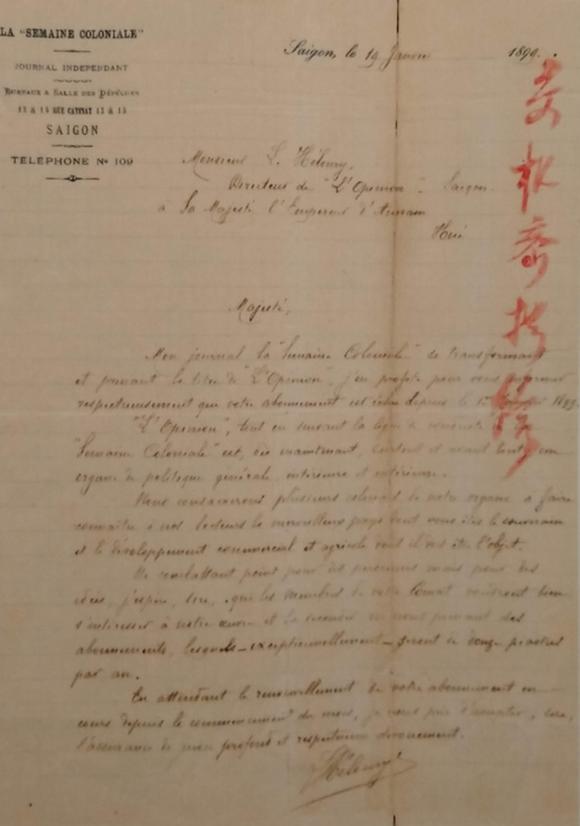 LA "SEMAINE COLONIALE"
JOURNAL INDEPENDANT
BUREAUX & SALLE DES DÉPÊCHES
13 & 15 RUE CATINAT 13 & 15
SAIGON
TELÉPHONE No 109
Saigon, le 19 Janvier 1899.
Monsieur L. Héloury,
Directeur de "L'Opinion" - Saigon
à Sa Majesté l'Empereur d'Annam
Hué
Majesté,
Mon journal la "Semaine Coloniale" se transformant
et prenant le titre de "L'Opinion", j'en profite pour vous
respectueusement que votre abonnement est échu depuis le 1er 1899.
"L'Opinion", tout en suivant la ligne de conduite
"Semaine Coloniale" est, dès maintenant, surtout et avant tout, un
organe de politique générale, intérieure et extérieure.
Nous consacrerons plusieurs colonnes de notre organe à faire
connaître à nos lecteurs le merveilleux pays dont vous êtes le souverain
et le développement commercial et agricole dont il doit être l'objet.
Ne combattant point pour des personnes mais pour des
idées, j'espère, Sire, que les membres de votre Comat voudront bien
s'intéresser à notre œuvre et la seconder en nous prenant des
abonnements, lesquels - exceptionnellement - seront de douze piastres
par an.
En attendant le renouvellement de votre abonnement en
cours depuis le commencement du mois, je vous prie d'accepter, Sire,
l'assurance de mon profond et respectueux dévouement.
Héloury